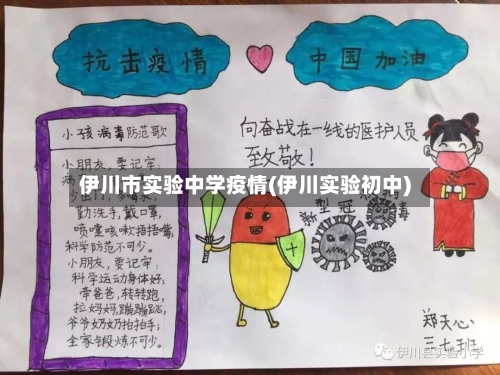 抗击疫情
中国加油
小孩病毒防范歌
向奋战在一线的医护人员
致敬！
小朋友，要记牢；
伊川市实验中学疫情(伊川实验初中)
勤洗手，戴口罩，
喷嚏咳嗽捂捂嘴，
科学防范不可少。
小朋友，要记牢；
科学运动身体好；
带爸爸，转转跑，
拉妈妈，蹦蹦跳，
爷爷奶奶拍拍手；
全家锻炼不可少。
型冠
毒
郑天心
三七班
伊川县实验小学